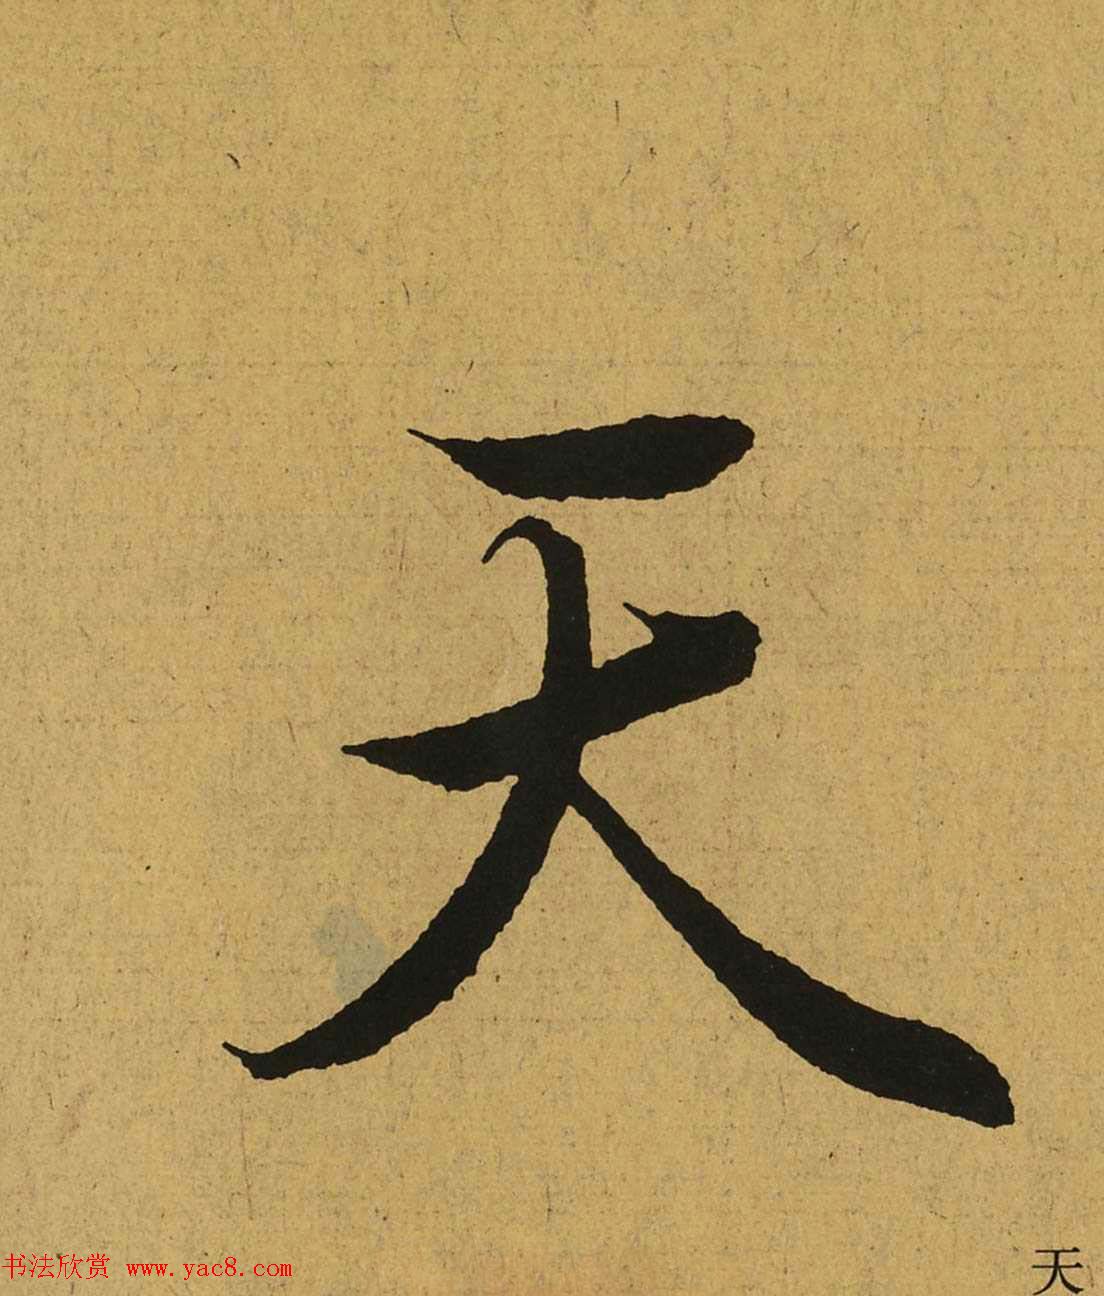 天
书法欣赏 www.yac8.com
天